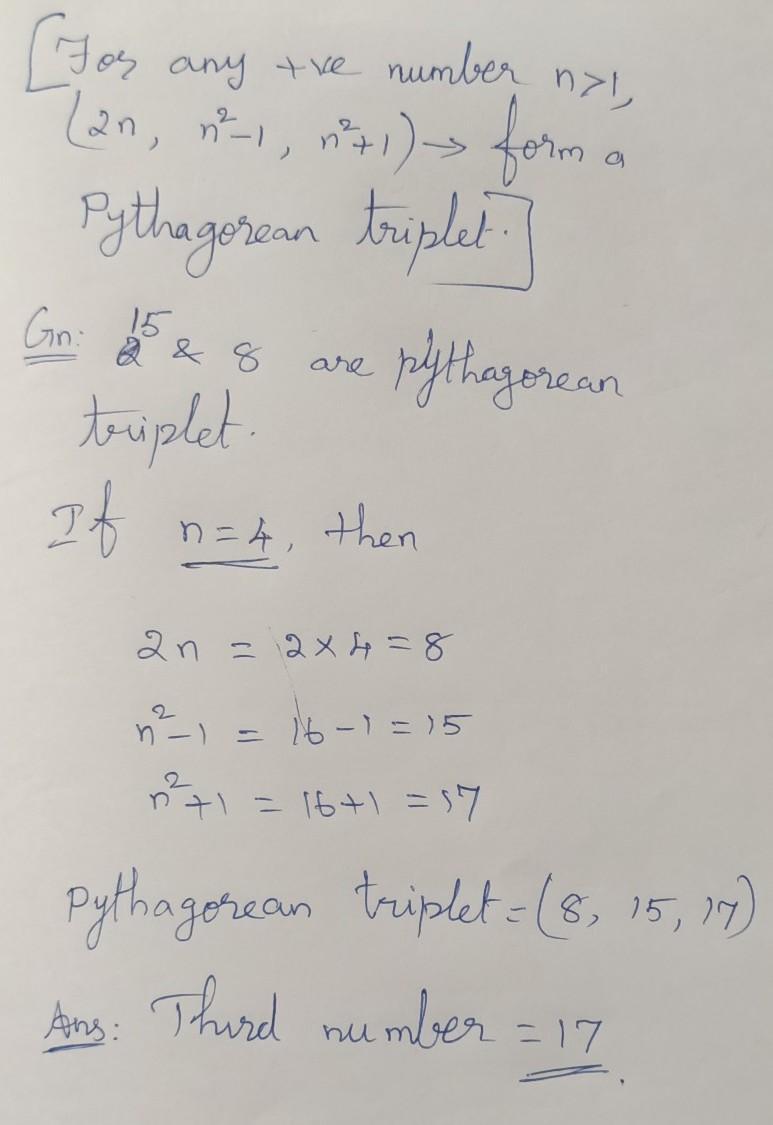 [For any +ve number n>1,
(2n, n²-1, n²+1) → form a
Pythagorean triplet.]
Gn: 15 & 8 are pythagorean
triplet.
If n=4, then
2n = 2×4=8
n²-1 = 16-1=15
n²+1 = 16+1=17
Pythagorean triplet=(8, 15, 17)
Ans: Third number =17.